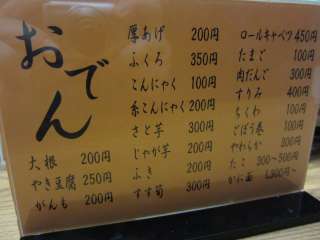 おでん
大根 200円
やき豆腐 250円
がんも 200円
厚あげ 200円
ふくろ 350円
こんにゃく 100円
糸こんにゃく 200円
さと芋 300円
じゃが芋 200円
ふき 200円
すす筍 300円
ロールキャベツ 450円
たまご 100円
肉だんご 300円
すりみ 400円
ちくわ 100円
ごぼう巻 200円
やわらか 200円
たこ 300～500円
かに面